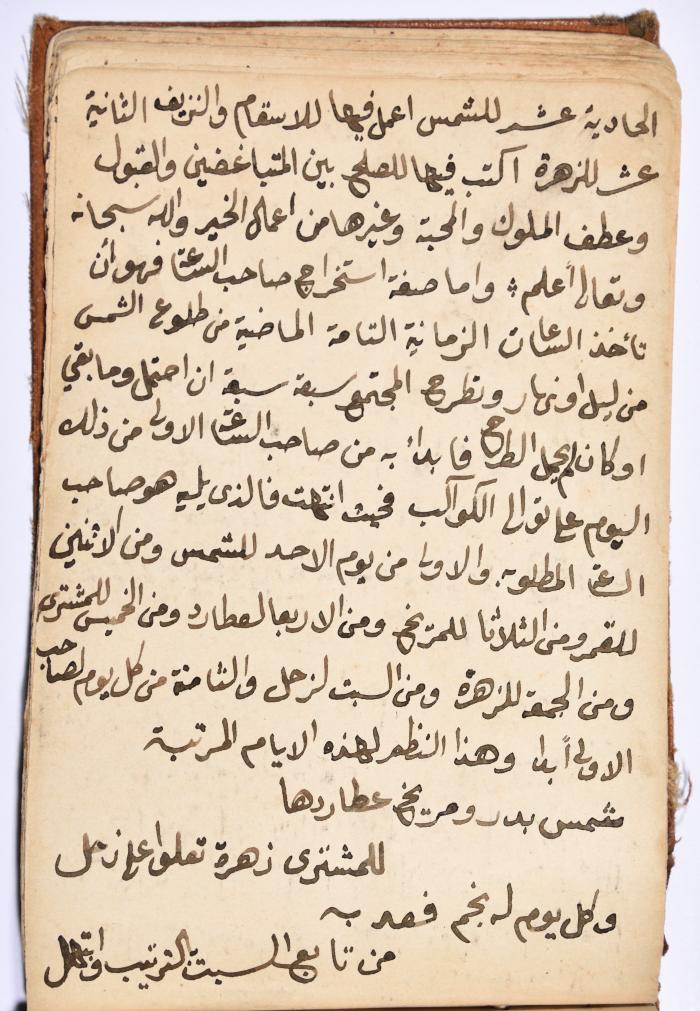 الحادية عشر للشمس اعمل فيها للاسقام والنزيف الثانية
عشر للزهرة اكتب فيها للصلح بين المتباغضين والقبول
وعطف الملوك والمحبة وغيرها من اعمال الخير والله سبحانه
وتعالى أعلم واما صفة استخراج صاحب الساعة فهو أن
تأخذ الساعات الزمانية التامة الماضية من طلوع الشمس
من ليل او نهار وتطرح المجتمع سبعة سبعة ان احتمل وما بقي
او كان لم يحمل الطرح فابدأ به من صاحب الساعة الاولى من ذلك
اليوم على توالى الكواكب فحيث انتهت فالذى يليه هو صاحب
الساعة المطلوبه والاولى من يوم الاحد للشمس ومن الاثنين
للقمر ومن الثلاثا للمريخ ومن الاربعا لعطارد ومن الخميس للمشترى
ومن الجمعة للزهرة ومن السبت لزحل والثامنة من كل يوم لصاحب
الاولى أبدا وهذا النظم لهذه الايام المرتبة
شمس بدر ومريخ عطاردها
للمشترى زهرة تعلوا على زحل
وكل يوم له نجم فعد به
من تابع السبت بالترتيب وابتهل